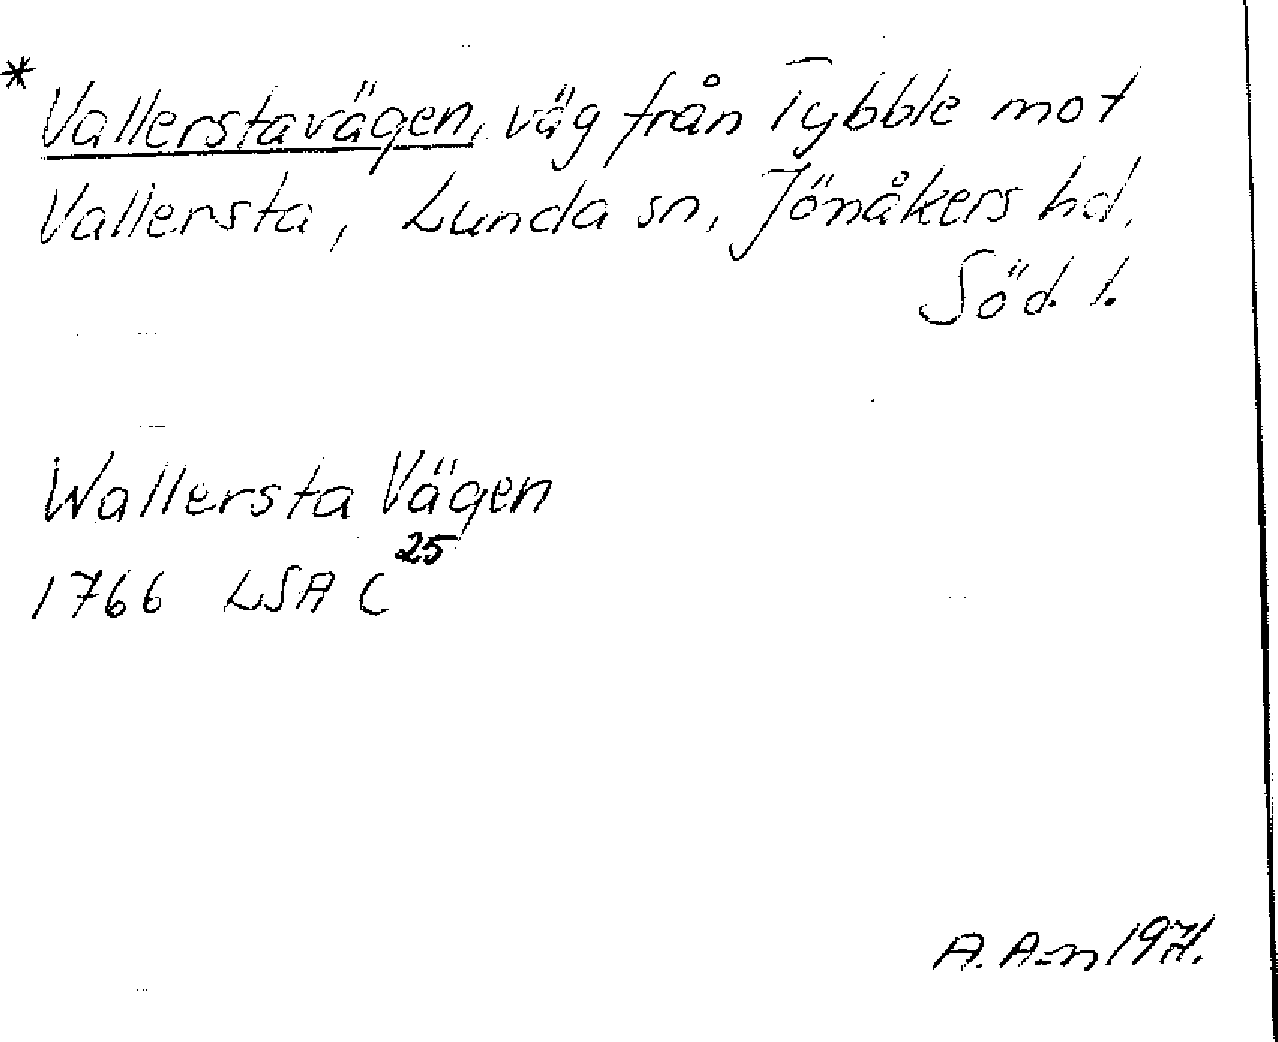 * Vallerstavägen, väg från Tybble mot
Vallersta, Lunda sn, Jönåkers hd.
Söd. l.
Wallersta Vägen
1766 LSA C 25
A. A-n 1971.